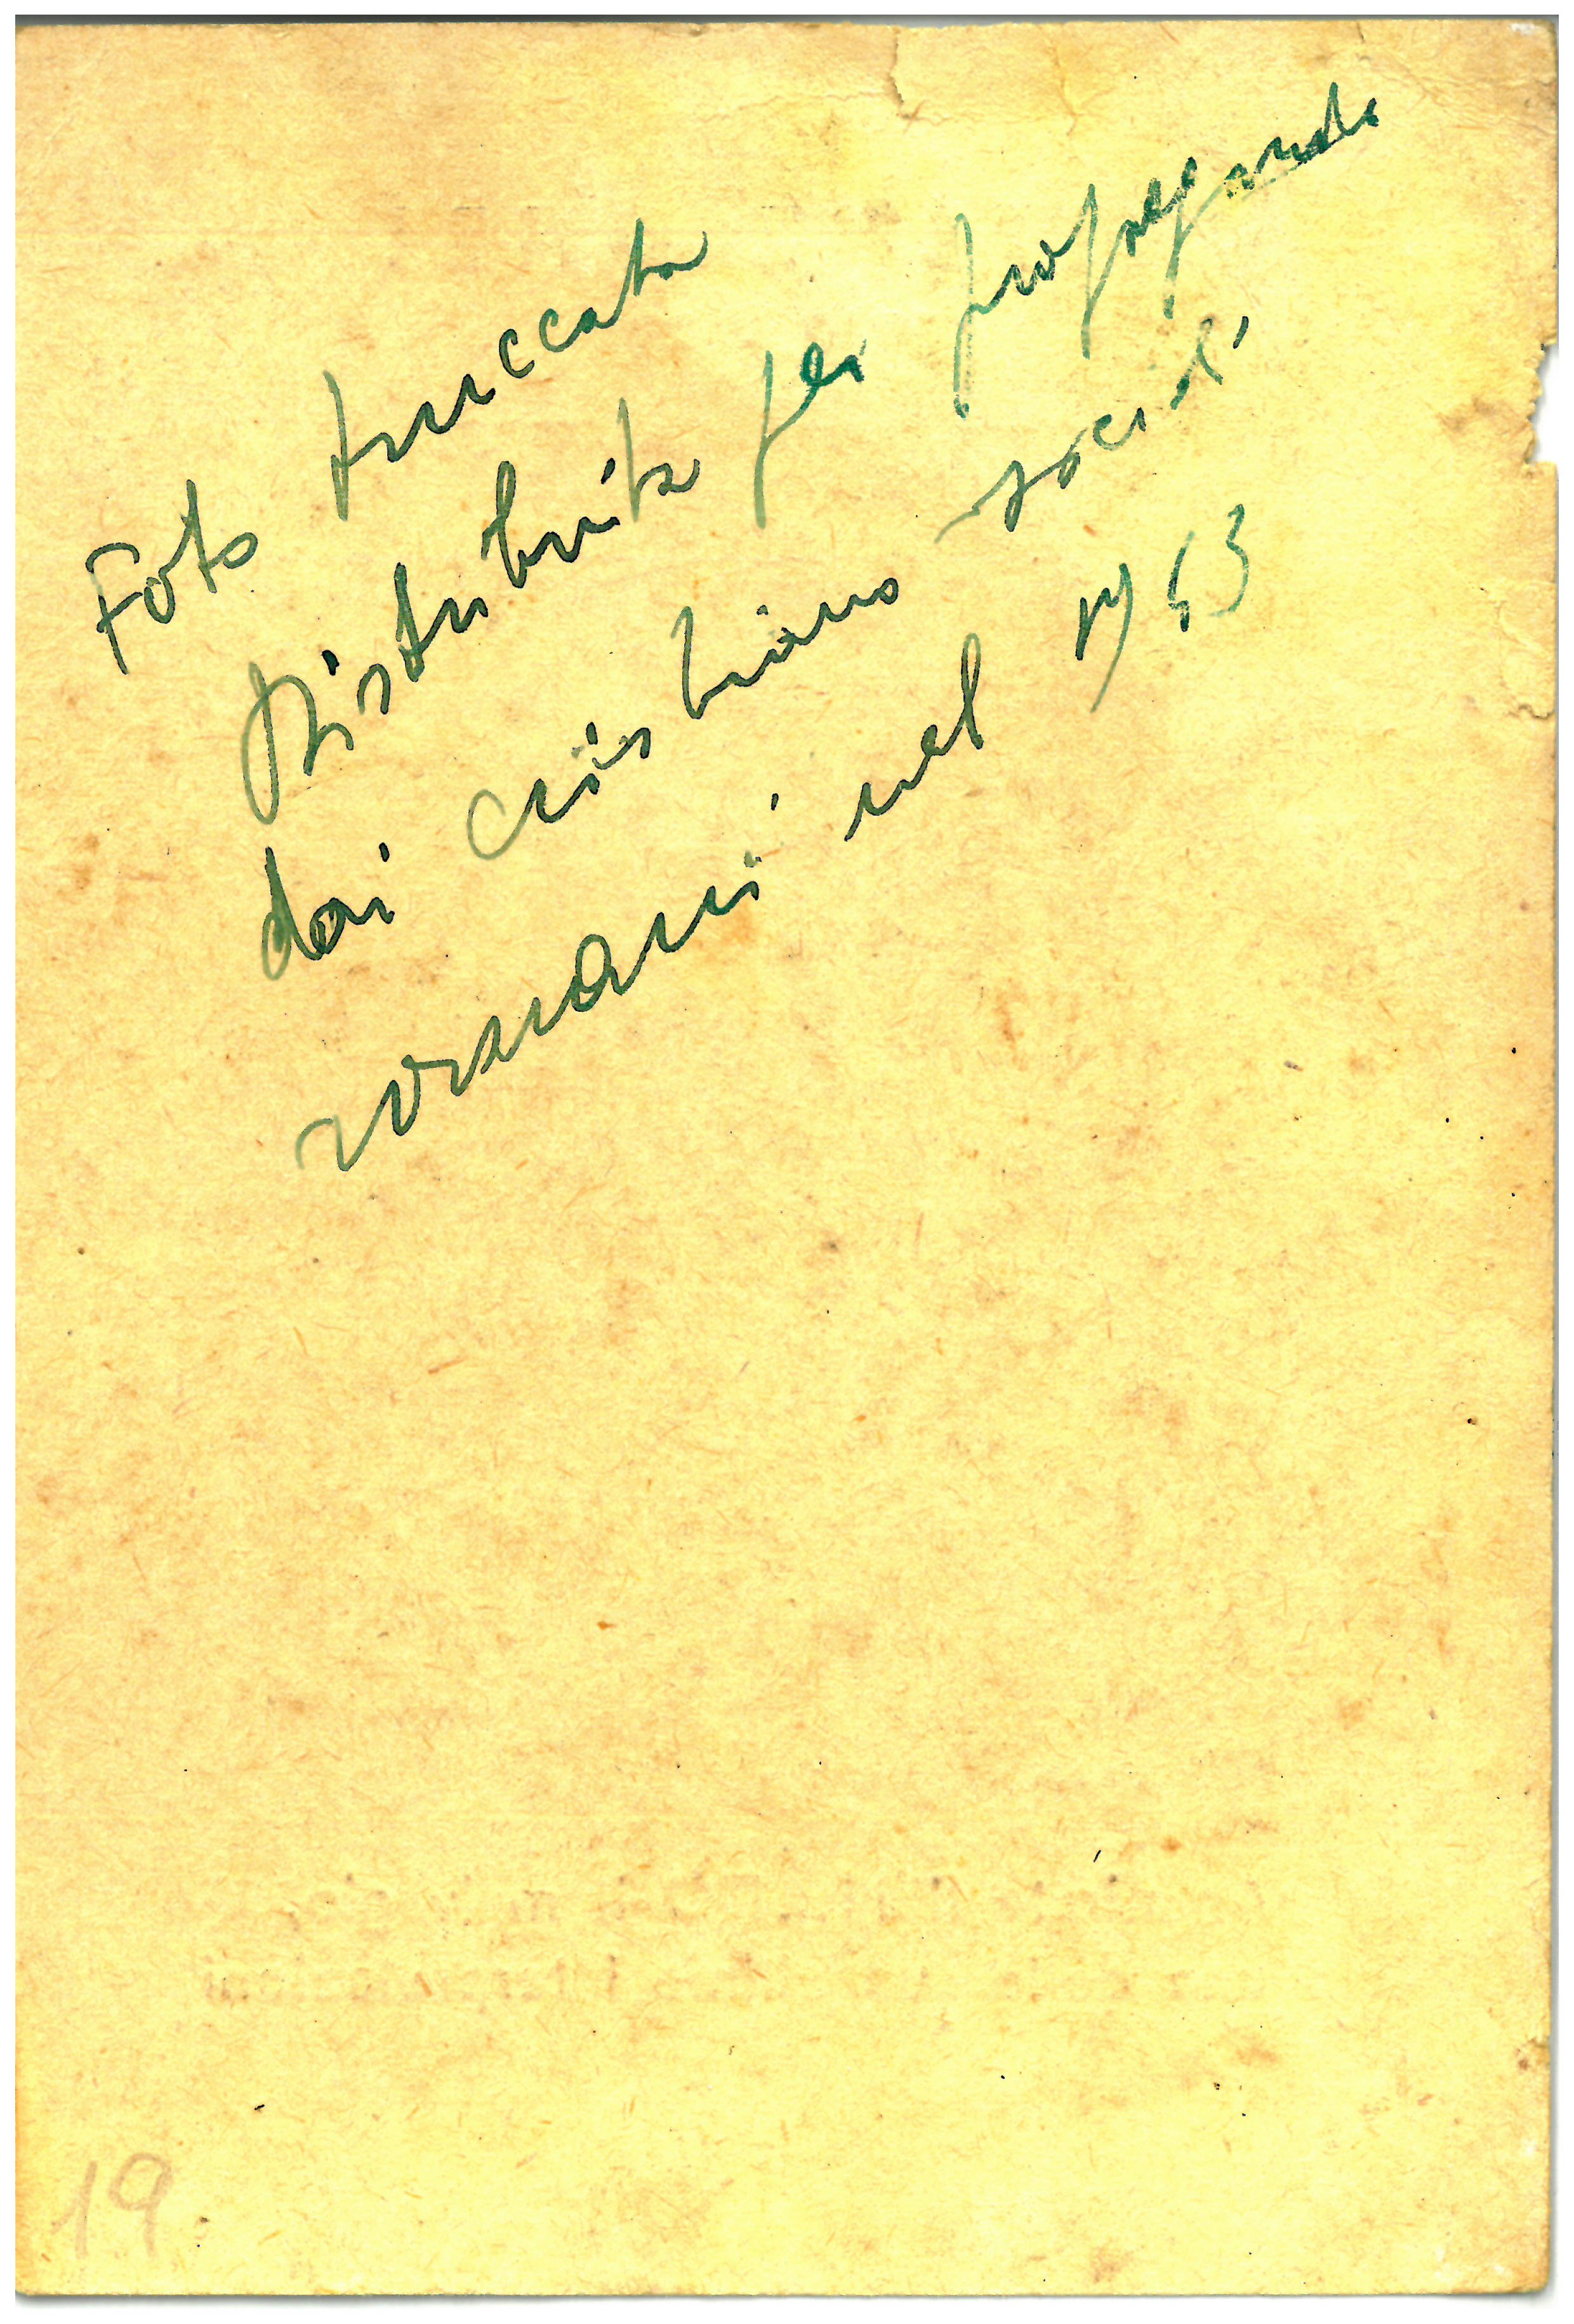 Foto truccata
distribuita per propaganda
dai cristiano sociali
romani nel 1953
19